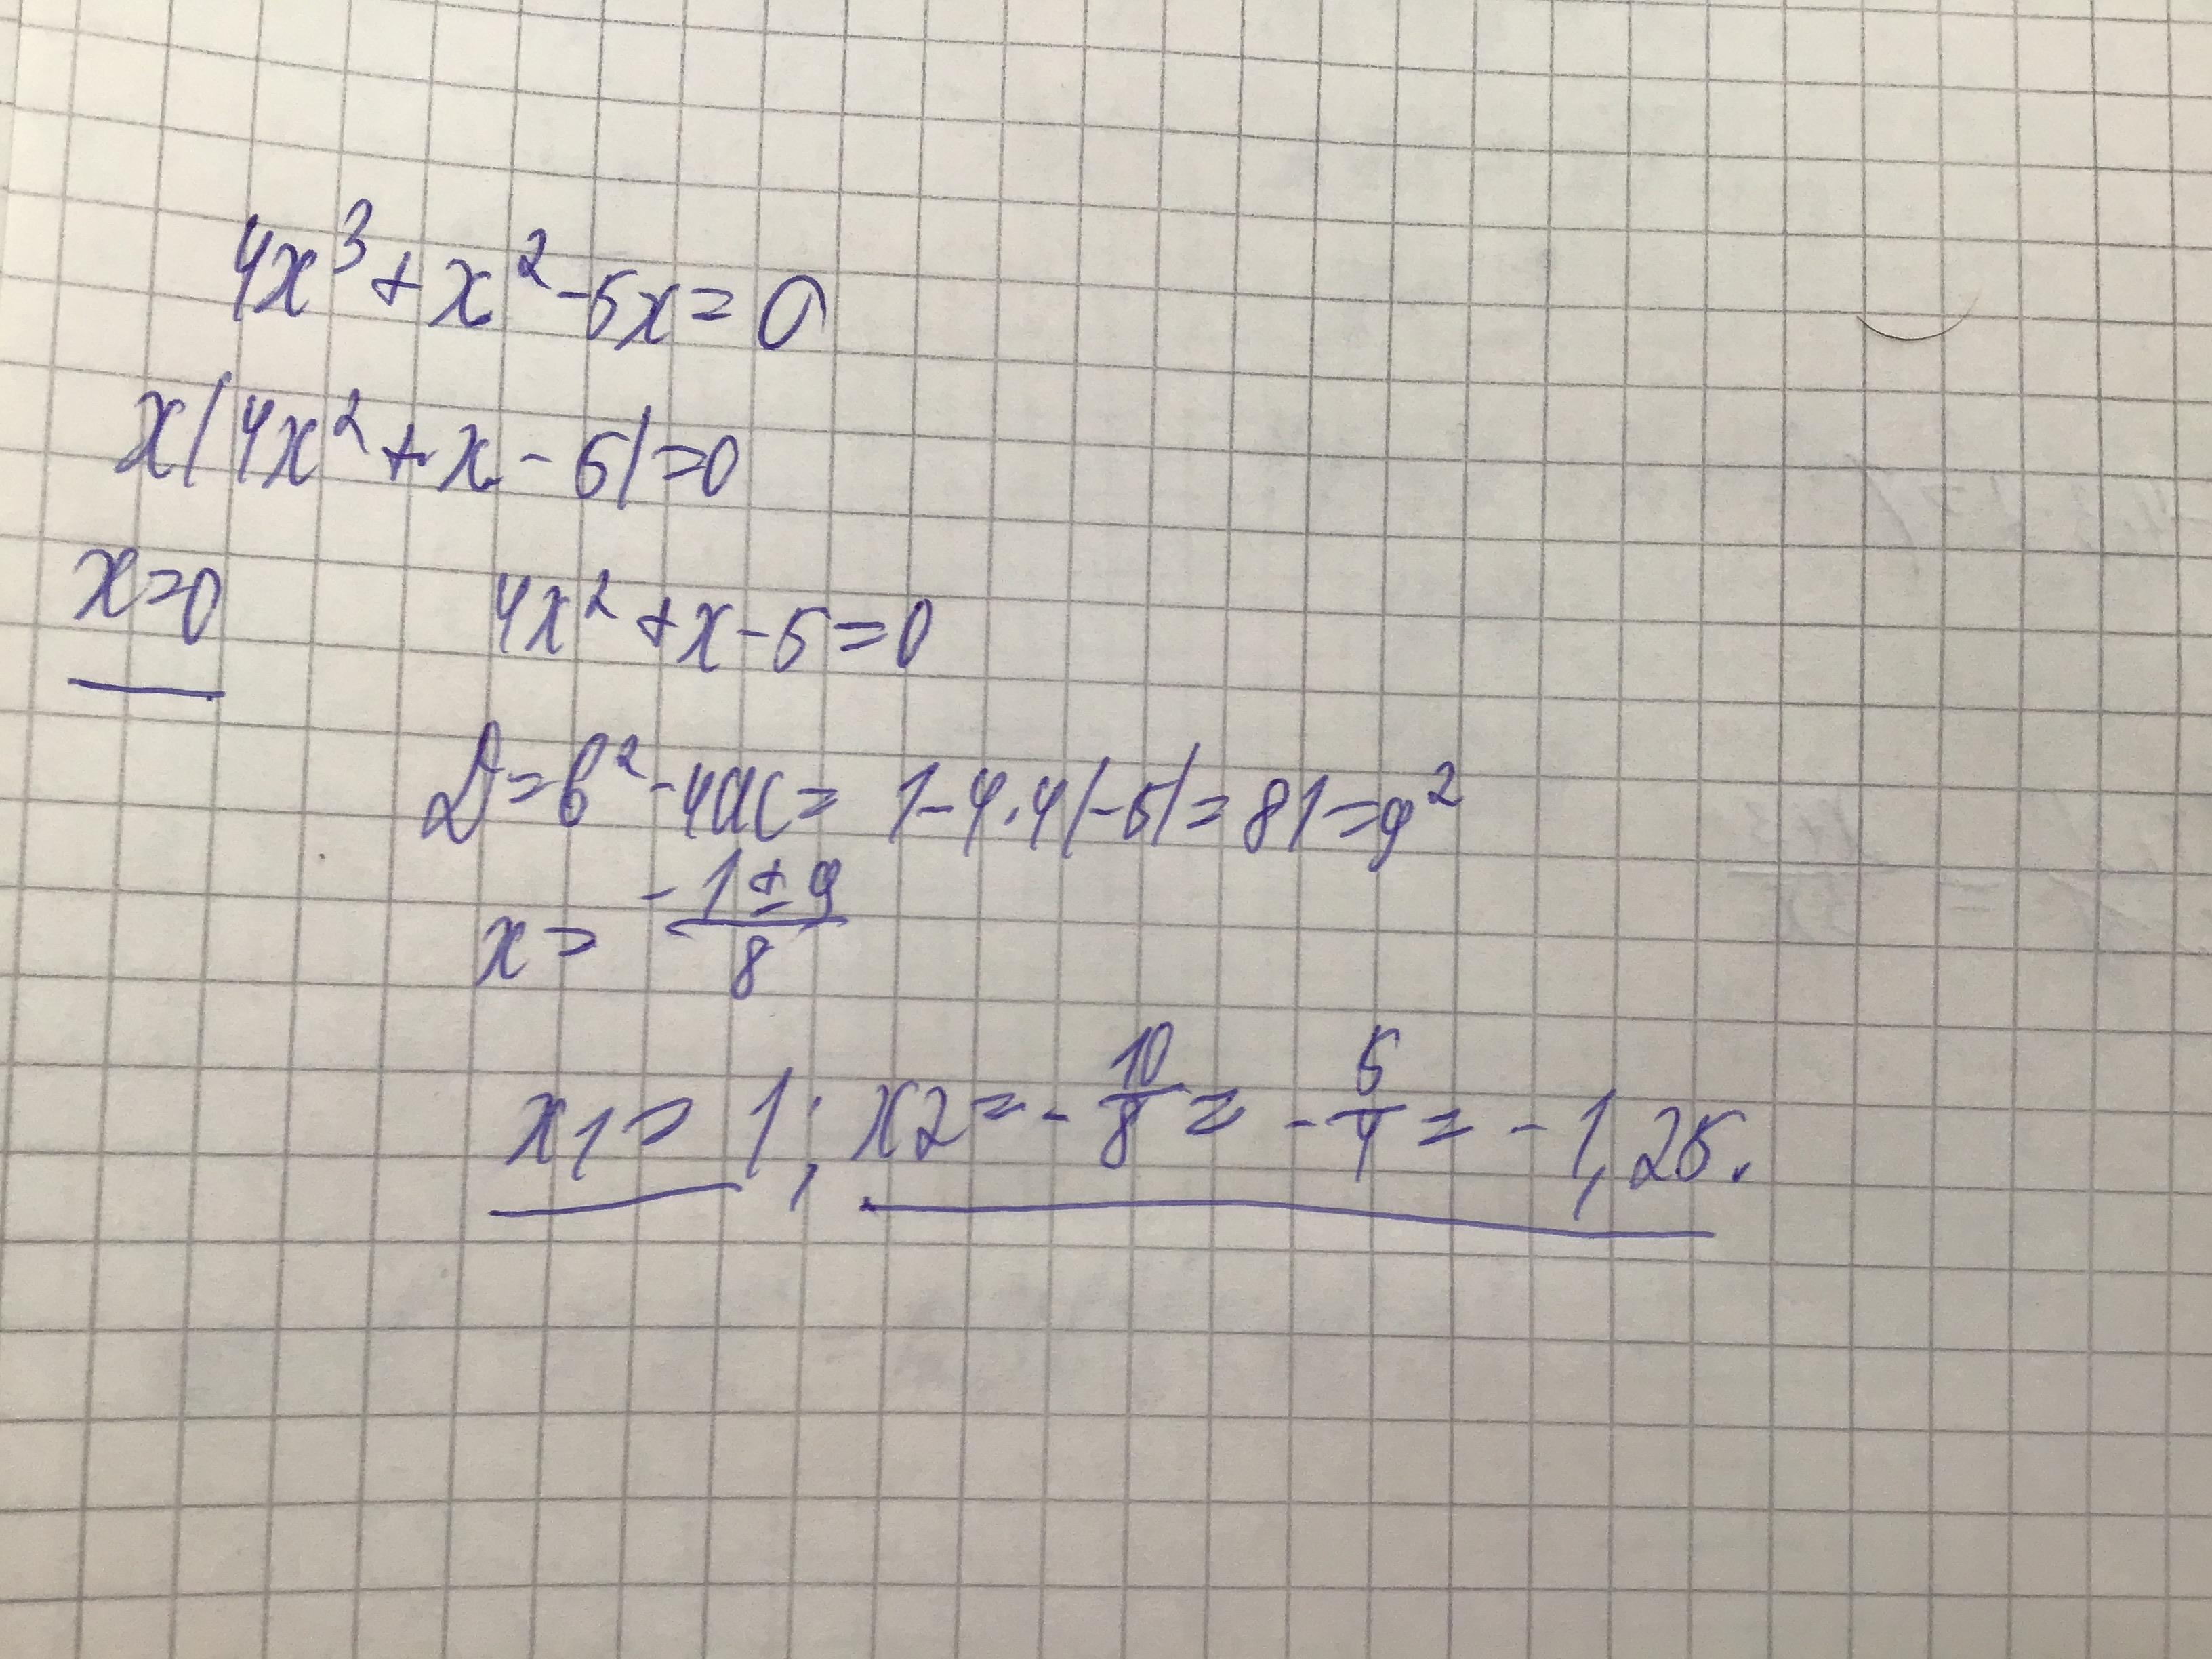 4x³+x²-5x=0
x(4x²+x-5)=0
x=0 4x²+x-5=0
D=b²-4ac=1-4·4(-5)=81=9²
x=-1±9/8
x1=1; x2=-10/8=-5/4=-1,25.